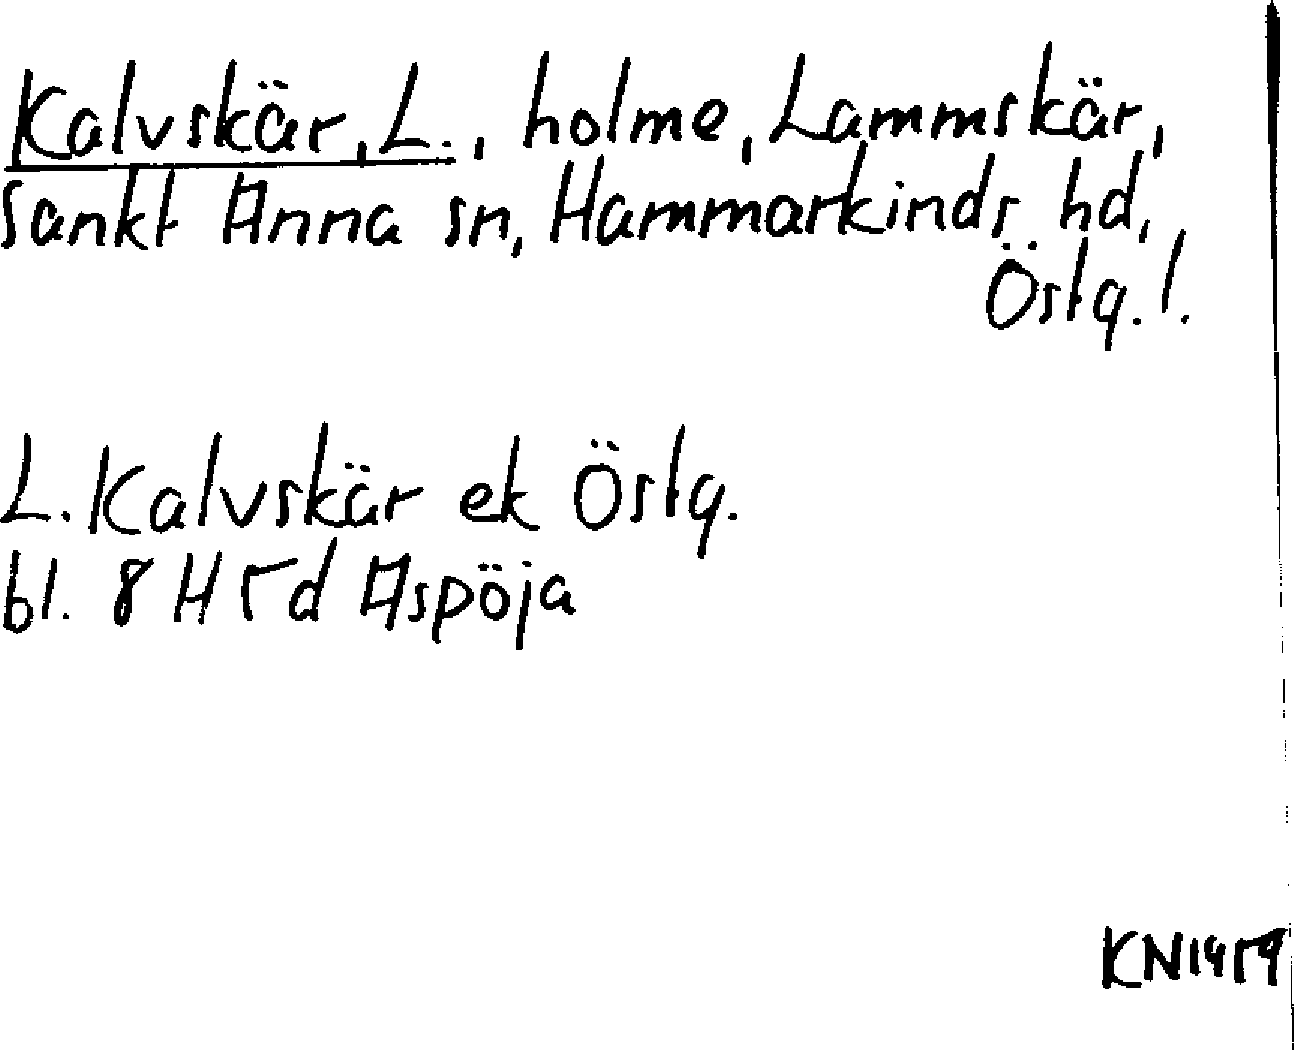 Kalvskär, L., holme, Lammskär,
Sankt Anna sn, Hammarkinds hd,
Östg. l.
L. Kalvskär ek Östg.
bl. 8 H 5 d Aspöja
KN 1959